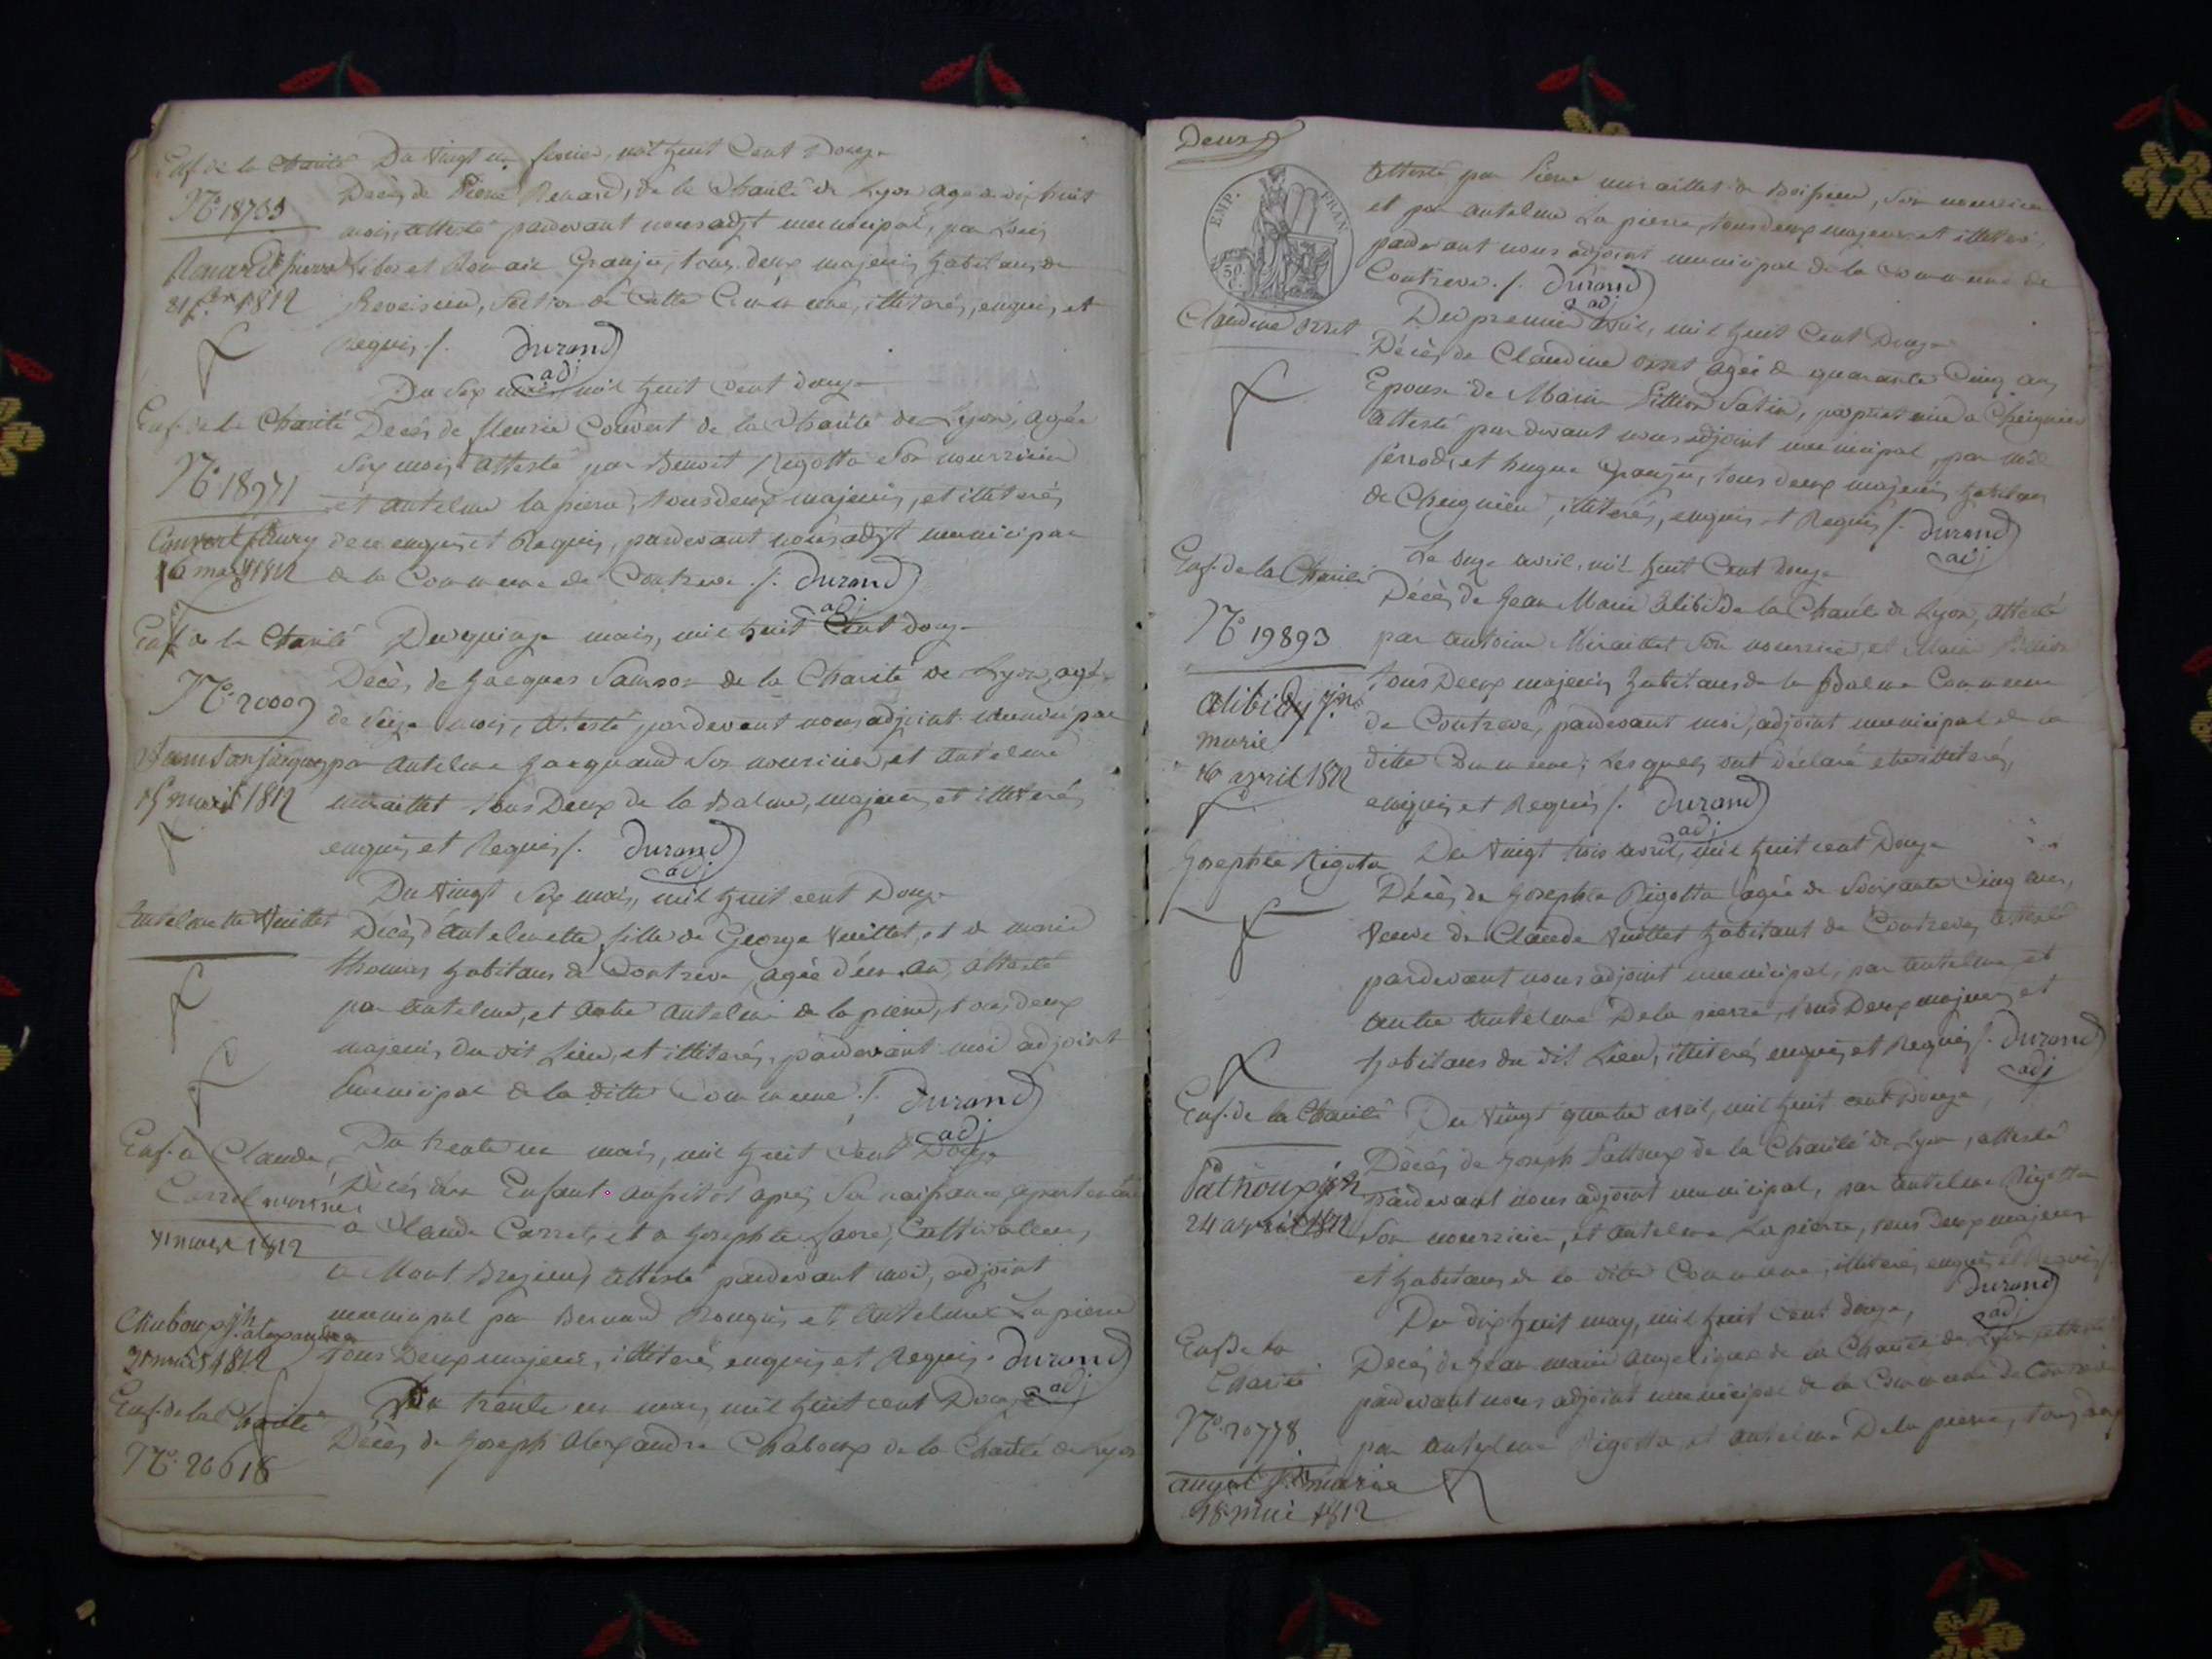 Enf. de la Charité Du vingt un fevrier, mil huit Cent Douze
N.o 18755
Décès de Pierre Renard, de la Charité de Lyon agé de dix huit
mois, attesté pardevant nous adjt municipal, par Louis
Renard pierre
et Romain Granju, tous deux majeurs habitans de
21 fer 1812
section de Cette Commune, illiterés, enquis, et
Requis ./. Durand
adj
Du Six mars mil huit Cent douze
Enf. de la Charité Decès de fleurie Couvert de la Charité de Lyon, agée
Six mois, attesté par Benoit Rigotta Son nourricier
N.o 18971
et antelme lapierre, tous deux majeurs, et illiterés
Couvert fleury
de ce enquis et Requis, pardevant nous adjt municipal
6 mars 1812
de la Commune de Contrevé ./. Durand
adj
Enf. de la Charité Du quinze mars, mil huit Cent douze
Décès de Jacques Samson de la Charité de Lyon, agé
N.o 20009
de Seize mois, attesté pardevant nous adjoint municipal
Samson jacques par antelme Jacquand Son nourricier, et antelme
15 mars 1812 miraillet tous Deux de la Balme, majeurs, et illiterés
enquis et Requis ./. Durand
adj
Du vingt Six mars, mil huit cent Douze
Antelmette Vuillet
Décès d'antelmette fille de George Vuillet, et de marie
thomas habitans de Contrevé, agée d'un an, attesté
par antelme, et autre antelme de la pierre, tous deux
majeurs du dit Lieu, et illiterés, pardevant moi adjoint
municipal de la ditte Commune ./. Durand
adj
Enf. à Claude
Du trente un mars, mil huit Cent Douze
Carrel
Décès d'un Enfant aussitot après Sa naissance, apartenant
à Claude Carrel, et à Josephte Cultivateurs,
31 mars 1812
à attesté pardevant moi, adjoint
Chaboux jh alexandre
municipal par Bernard et Antelme La pierre
31 mars 1812
tous Deux majeurs, illiterés, enquis et Requis. Durand
adj
Enf. de la Charité
Du trente un mars mil huit cent Douze
N.o 20618
Décès de Joseph Alexandre Chaboux de la Charité de Lyon
Deux
EMP. FRAN
50 C.
attesté par Pierre miraillet de Son nourricier
et par antelme La pierre, tous deux majeurs et illiterés,
pardevant nous adjoint municipal de la Commune de
Contrevé ./. Durand
adj
Du premier avril, mil huit Cent Douze
Claudine orset
Décès de Claudine orset agée de quarante Cinq ans
Epouse de Marin
attesté pardevant nous adjoint municipal, par
et hugue Granju, tous deux majeurs habitans
de Cheignieu, illiterés, enquis et Requis ./. Durand
adj
Enf. de la Charité
Le onze avril, mil huit Cent Douze
Décès de Jean Marie alibi de la Charité de Lyon, attesté
N.o 19893
par antoine Miraillet Son nourricier, et
tous Deux majeurs habitans de la Balme Commune
alibi jn marie
de Contrevé, pardevant moi, adjoint municipal de la
avril 1812
ditte Commune; Lesquels ont déclaré etre illiterés,
enquis et Requis ./. Durand
adj
Josephte Rigota
Du vingt trois avril, mil huit cent Douze
Décès de Josephte Rigotta agée de Soixante Cinq ans,
veuve de Claude Vuillet habitant de Contrevé, attesté
pardevant nous adjoint municipal, par antelme et
autre antelme De la pierre, tous Deux majeurs, et
habitans du dit Lieu, illiterés, enquis, et Requis ./. Durand
adj
Enf. de la Charité
Du vingt quatre avril, mil huit cent Douze
Décès de Joseph Pathoux de la Charité de Lyon, attesté
Pathoux jph
pardevant nous adjoint municipal, par antelme Rigotta
24 avril 1812
Son nourricier, et antelme La pierre, tous Deux majeurs
et habitans de la ditte Commune, illiterés, enquis, et Requis ./.
Durand
adj
Du dix huit may, mil huit Cent douze,
Enf. De la Charité
Décès de Jean marie angelique de la Charité de Lyon attesté
pardevant nous adjoint municipal de la Commune de Contrevé
N.o 20778
par antelme Rigotta et antelme De la pierre, tous deux
marie
18 mai 1812